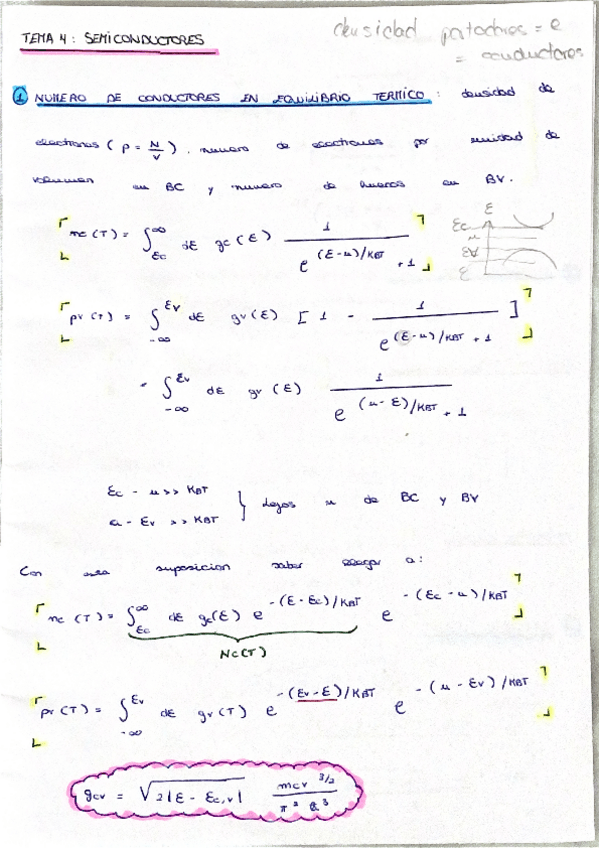 TEMA 4: SEMICONDUCTORES
densidad portadores = e
= conductores
① NUMERO DE CONDUCTORES EN EQUILIBRIO TERMICO: densidad de
electrones (ρ = N/V). numero de electrones por unidad de
volumen en BC y numero de huecos en BV.
nc (T) = ∫_{εc}^{∞} dε gc (ε) 1 / (e^{(ε-μ)/KBT} + 1)
ε
εc
μ
εv
ε
pv (T) = ∫_{-∞}^{εv} dε gv(ε) [ 1 - 1 / (e^{(ε-μ)/KBT} + 1) ]
= ∫_{-∞}^{εv} dε gv (ε) 1 / (e^{(μ-ε)/KBT} + 1)
εc - μ >> KBT
μ - εv >> KBT } Lejos μ de BC y BV
Con esta suposicion saber llegar a:
nc (T) = ∫_{εc}^{∞} dε gc(ε) e^{-(ε-εc)/KBT} e^{-(εc-μ)/KBT}
Nc(T)
pv (T) = ∫_{-∞}^{εv} dε gv (T) e^{-(εv-ε)/KBT} e^{-(μ-εv)/KBT}
gc,v = √(2|ε - εc,v|) mc,v^{3/2} / (π² ħ³)